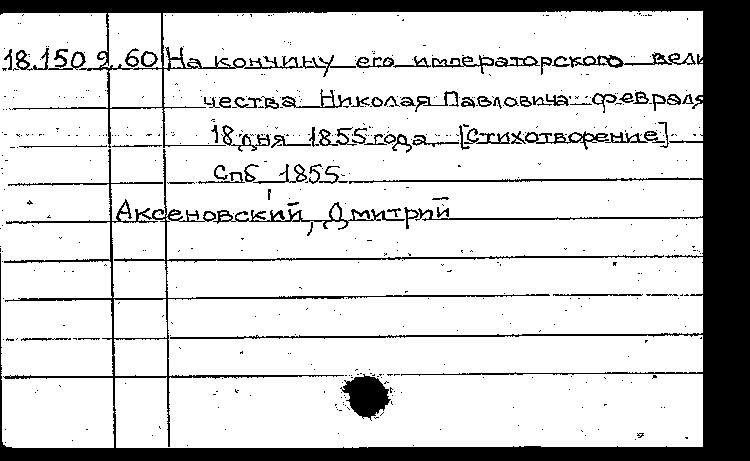 18.150.2.60 На кончину его императорского вели
чества Николая Павловича февраля
18 дня 1855 года. [Стихотворение]
Спб, 1855
Аксеновский, Дмитрий